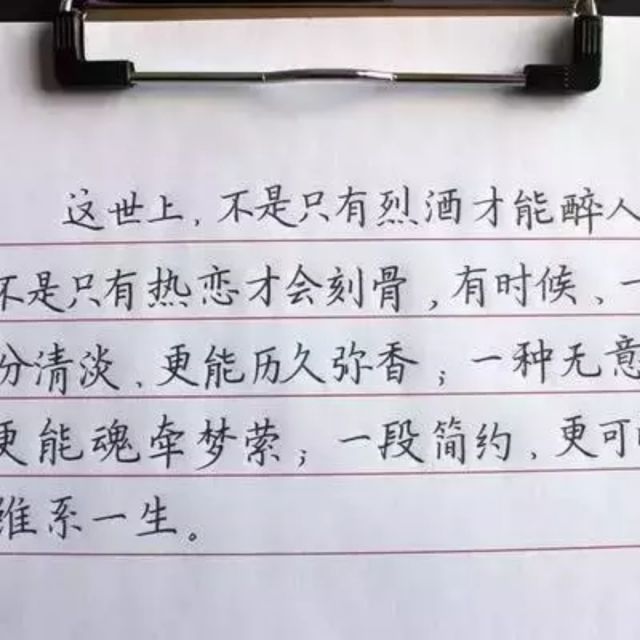 这世上,不是只有烈酒才能醉人
不是只有热恋才会刻骨,有时候、一
分清淡、更能历久弥香;一种无意
更能魂牵梦萦;一段简约,更可
维系一生。